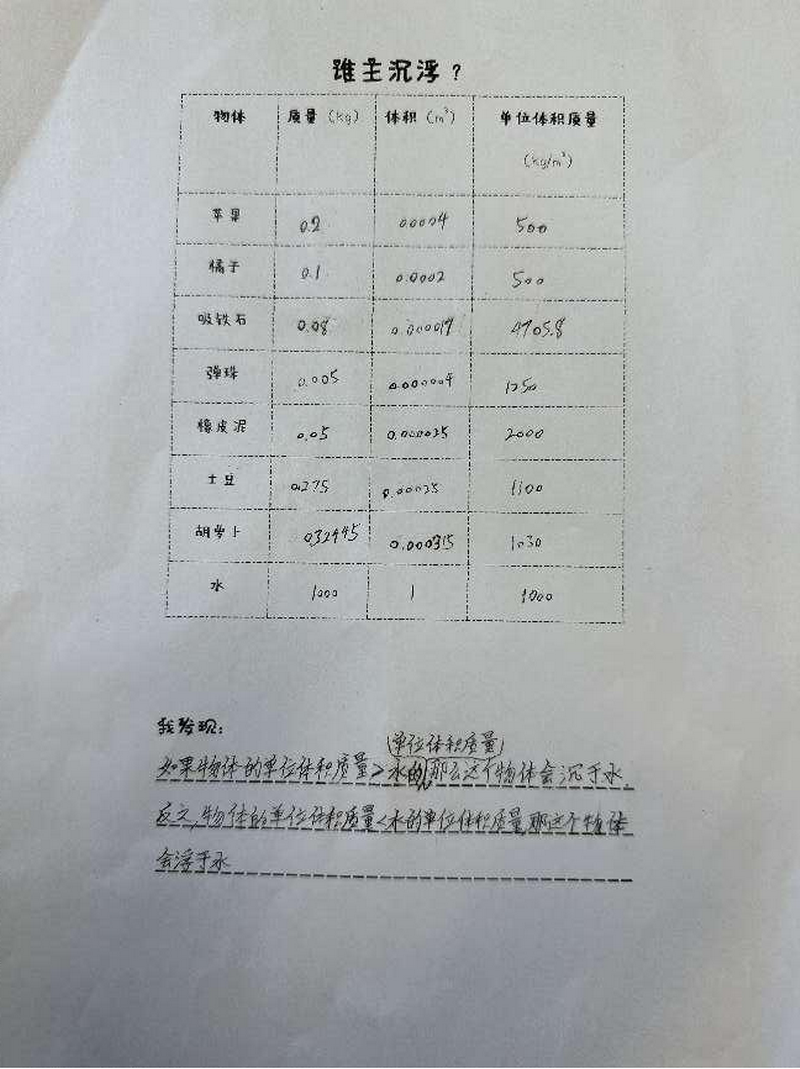 谁主沉浮？
物体 质量（kg） 体积（m³） 单位体积质量
（kg/m³）
苹果 0.2 0.0004 500
橘子 0.1 0.0002 500
吸铁石 0.08 0.000017 4705.8
弹珠 0.005 0.000004 1250
橡皮泥 0.05 0.000025 2000
土豆 0.275 0.00025 1100
胡萝卜 0.32445 0.000315 1030
水 1000 1 1000
我发现：
(单位体积质量)
如果物体的单位体积质量>水的,那么这个物体会沉于水,
反之,物体的单位体积质量<水的单位体积质量,那这个物体
会浮于水